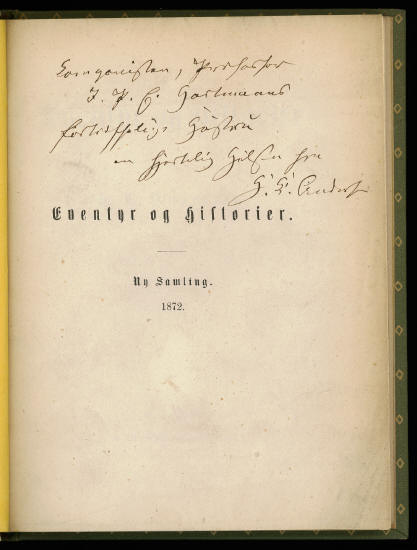 Componisten, Professor
J. P. E. Hartmanns
fortræffelige Hustru
en hjertelig Hilsen fra
H. C. Andersen
Eventyr og Historier.
Ny Samling.
1872.